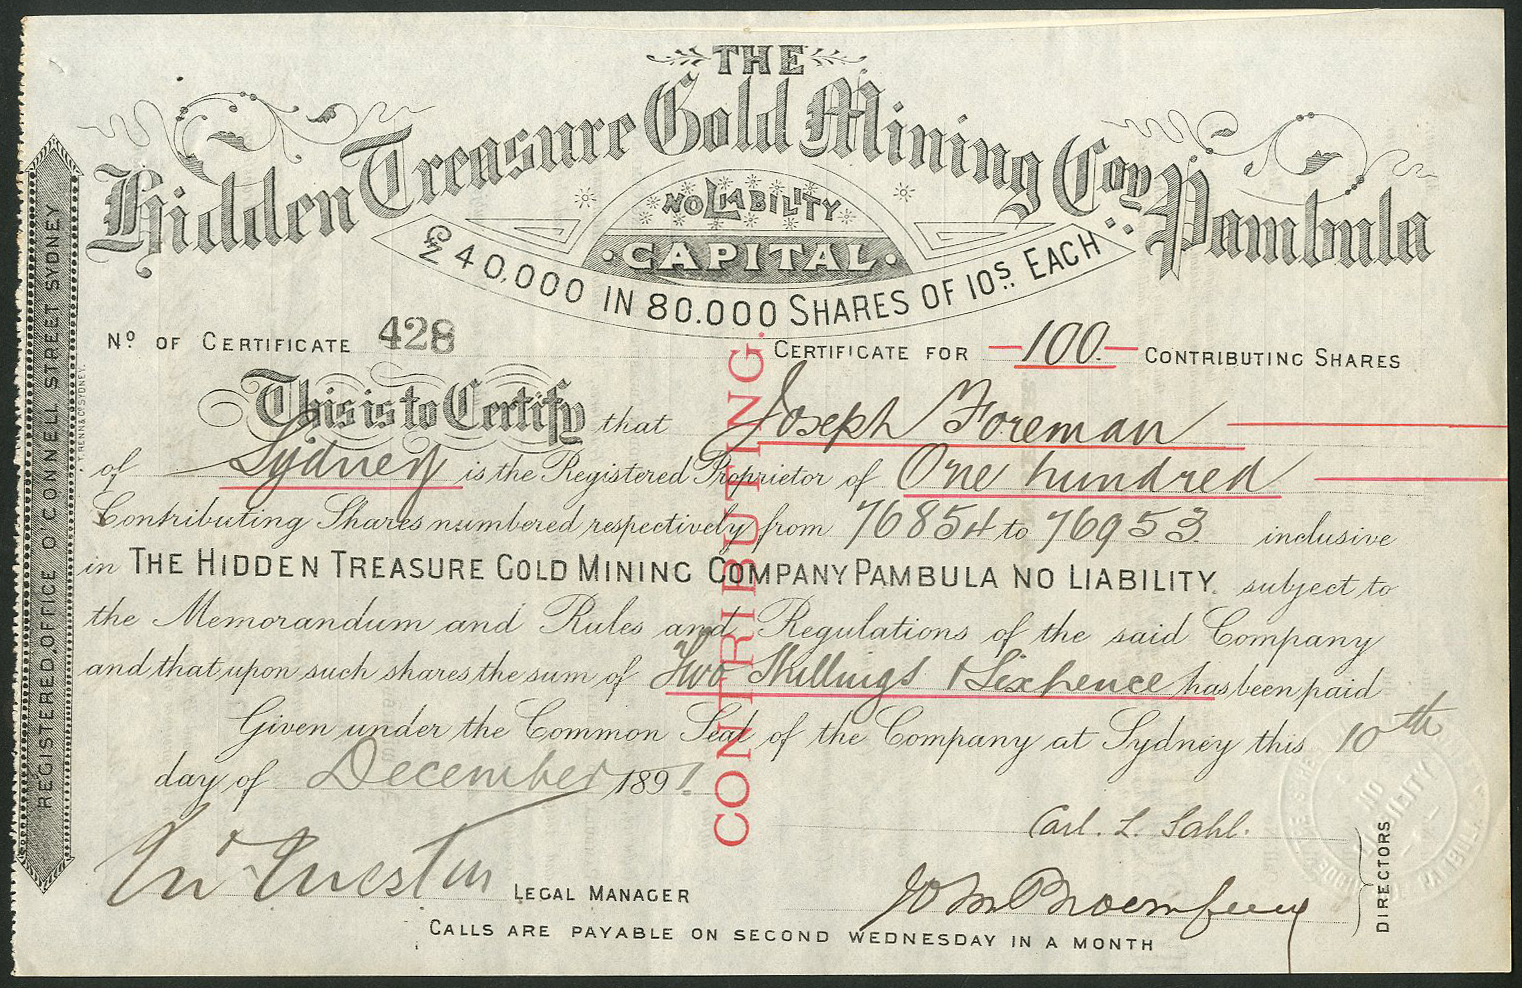 THE
Hidden Treasure Gold Mining Coy Pambula
NO LIABILITY
CAPITAL
£40,000 IN 80.000 SHARES OF 10s EACH
No OF CERTIFICATE 428
CERTIFICATE FOR 100. CONTRIBUTING SHARES
This is to Certify that Joseph Foreman
of Sydney is the Registered Proprietor of One hundred
Contributing Shares numbered respectively from 76854 to 76953 inclusive
in THE HIDDEN TREASURE GOLD MINING COMPANY PAMBULA NO LIABILITY. subject to
the Memorandum and Rules and Regulations of the said Company
and that upon such shares the sum of Two Shillings & Sixpence has been paid
Given under the Common Seal of the Company at Sydney this 10th
day of December 1891
Carl. L. Sahl.
LEGAL MANAGER
DIRECTORS
CALLS ARE PAYABLE ON SECOND WEDNESDAY IN A MONTH
CONTRIBUTING.
REGISTERED OFFICE O'CONNELL STREET SYDNEY
NO LIABILITY
PAMBULA